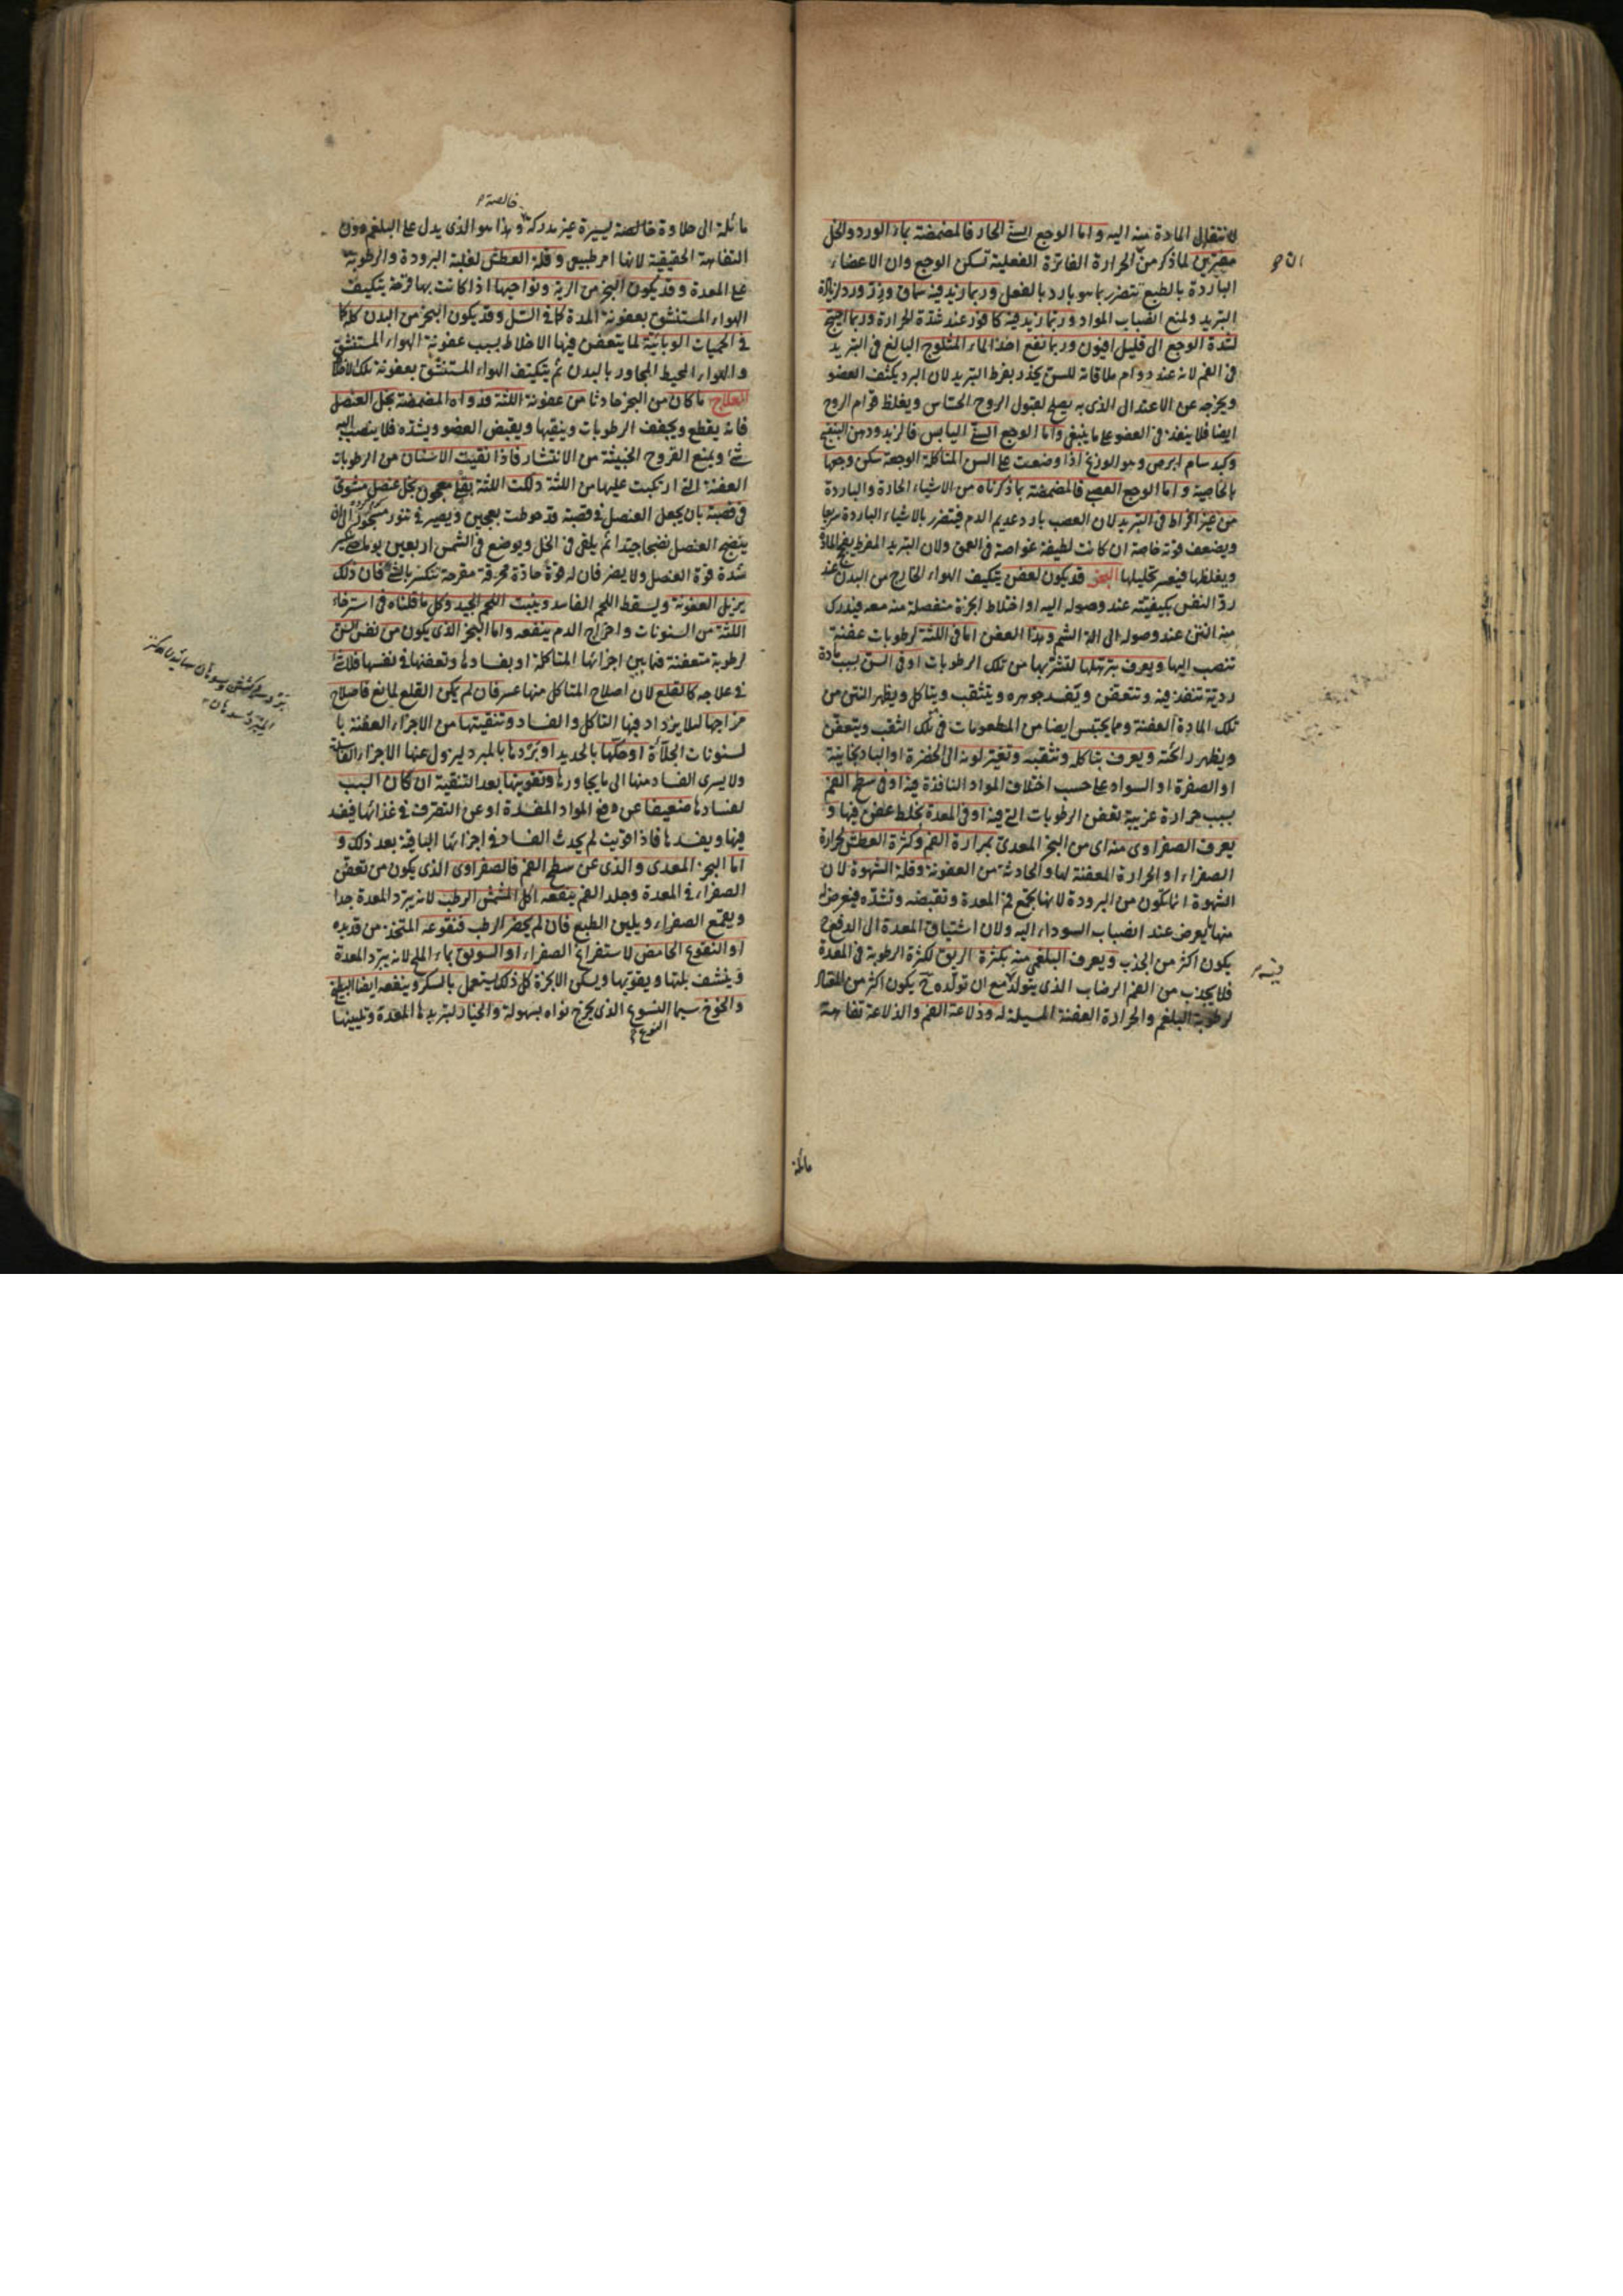 لانتقال المادة منه اليه واما الوجع السنى الحار فالمضمضة بماء الورد والخل
مفترين لما ذكر من ان الحرارة الفاترة الفعلية تسكن الوجع وان الاعضاء
الباردة بالطبع تتضرر بما هو بارد بالفعل وربما زيد فيه سماق وبزر ورد لزيادة
التبريد ولمنع انصباب المواد وربما زيد فيه كافور عند شدة الحرارة وربما احتيج
لشدة الوجع الى قليل افيون وربما نفع اخذ الماء المثلوج البالغ فى التبريد
فى الفم لانه عند دوام ملاقاته للسن يخدر بفرط التبريد لان البرد يكثف العضو
ويخرجه عن الاعتدال الذى به يصلح لقبول الروح الحساس ويغلظ قوام الروح
ايضا فلا ينفذ فى العضو على ما ينبغى واما الوجع السنى اليابس فالزبد ودهن البنفسج
وكبد سام ابرص وهو الوزغ اذا وضعت على السن المتاكلة الوجعة سكن وجعها
بالخاصية واما الوجع العصبى فالمضمضة بما ذكرناه من الاشياء الحارة والباردة
من غير افراط فى التبريد لان العصب بارد عديم الدم فيتضرر بالاشياء الباردة سريعا
ويضعف قوته خاصة ان كانت لطيفة غواصة فى العمق ولان التبريد المفرط يفجج المادة
ويغلظها فيعسر تحليلها البخر قد يكون لعفن يتكيف الهواء الخارج من البدن عند
رد النفس بكيفيته عند وصوله اليه او اختلاط ابخرة منفصلة منه معه فيدرك
منه النتن عند وصوله الى الة الشم وهذا العفن اما فى اللثة لرطوبات عفنة
تنصب اليها ويعرف بترهلها لتشربها من تلك الرطوبات او فى السن لسبب مادة
ردية تنفذ فيه وتتعفن ويفسد جوهره ويتثقب ويتاكل ويظهر النتن من
تلك المادة العفنة ومما يحتبس ايضا من المطعومات فى تلك الثقب ويتعفن
ويظهر رائحته ويعرف بتاكله وتثقبه وتغير لونه الى الخضرة او الباذنجانية
او الصفرة او السواد على حسب اختلاف المواد النافذة فيه او فى سطح الفم
بسبب حرارة غريبة تعفن الرطوبات التى فيه او فى المعدة لخلط عفن فيها و
يعرف الصفراوى منه اى من البخر المعدى بمرارة الفم وكثرة العطش لحرارة
الصفراء او الحرارة المعفنة لها والحادثة من العفونة وقلة الشهوة لان
الشهوة انما تكون من البرودة لانها تجمع فم المعدة وتقبضه وتشده فيعرض
منها ما يعرض عند انصباب السوداء اليه ولان اشتياق المعدة الى الدفع ح
يكون اكثر من الجذب ويعرف البلغمى منه بكثرة الريق لكثرة الرطوبة فى المعدة
فلا يجذب من الفم الرضاب الذى يتولد مع ان تولده ح يكون اكثر من المعتاد
لرطوبة البلغم والحرارة العفنة المسيلة له وذلاعة الفم والذلاعة تفاهة
فيه
مائلة
خالصة
مائلة الى حلاوة خالصة يسيرة غير مدركة وهذا هو الذى يدل على البلغم دون
التفاهة الحقيقية لانها امر طبيعى وقلة العطش لغلبة البرودة والرطوبة
على المعدة وقد يكون البخر من الرية ونواحيها اذا كانت بها قرحة يتكيف
الهواء المستنشق بعفونة المدة كما فى السل وقد يكون البخر من البدن كله كما
فى الحميات الوبائية لما يتعفن فيها الاخلاط بسبب عفونة الهواء المستنشق
والهواء المحيط المجاور بالبدن ثم يتكيف الهواء المستنشق بعفونة تلك الاخلاط
العلاج ما كان من البخر حادثا من عفونة اللثة فدواه المضمضة بخل العنصل
فانه يقطع ويجفف الرطوبات وينقيها ويقبض العضو ويشده فلا ينصب اليه
شئ ويمنع القروح الخبيثة من الانتشار فاذا نقيت الاسنان من الرطوبات
العفنة التى ارتكبت عليها من اللثة دلكت اللثة بقلى معجون بخل عنصل مشوى
فى قصبة بان يجعل العنصل فى قصبة قد حوطت بعجين ويصير فى تنور مسجور الى ان
ينضج العنصل نضجا جيدا ثم يلقى فى الخل ويوضع فى الشمس اربعين يوما
شدة قوة العنصل ولا يضر فان له قوة حادة محرقة مقرحة تنكسر بالشى فان ذلك
يزيل العفونة ويسقط اللحم الفاسد وينبت اللحم الجيد وكل ما قلناه فى استرخاء
اللثة من السنونات واخراج الدم ينفعه واما البخر الذى يكون من نفس السن
لرطوبة متعفنة فيما بين اجزائها المتاكلة او بفسادها وتعفنها فى نفسها فلا شئ
فى علاجه كالقلع لان اصلاح المتاكل منها عسر فان لم يكن القلع لمانع فاصلاح
مزاجها لئلا يزداد فيها التاكل والفساد وتنقيتها من الاجزاء العفنة با
لسنونات الجلاءة او حكها بالحديد او بردها بالمبرد ليزول عنها الاجزاء الفاسدة
ولا يسرى الفساد منها الى ما يجاورها وتقويتها بعد التنقية ان كان السبب
لفسادها ضعيفا عن دفع المواد المفسدة او عن التصرف فى غذائها فيفسد
فيها ويفسدها فاذا قويت لم يحدث الفساد فى اجزائها الباقية بعد ذلك و
اما البخر المعدى والذى عن سطح الفم فالصفراوى الذى يكون من تعفن
الصفراء فى المعدة وجلد الفم ينفعه اكل المشمش الرطب لانه يبرد المعدة جدا
ويقمع الصفراء ويلين الطبع فان لم يحضر الرطب فنقوعه المتخذ من قديده
او النقوع الحامض لاستفراغ الصفراء او السويق بماء الملح لانه يبرد المعدة
وينشف بلتها ويقويها ويسكن الابخرة كل ذلك يستعمل بالسكر وينفعه ايضا البطيخ
والخوخ سيما النسوع الذى يخرج نواه بسهولة والخيار لتبريدها المعدة وتليينها
النوع